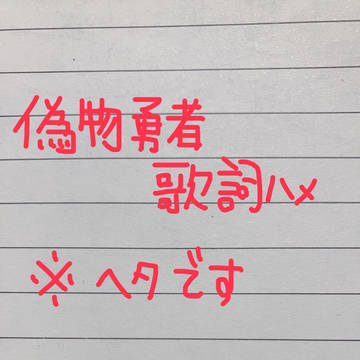 偽物勇者
歌詞ハメ
※ヘタです